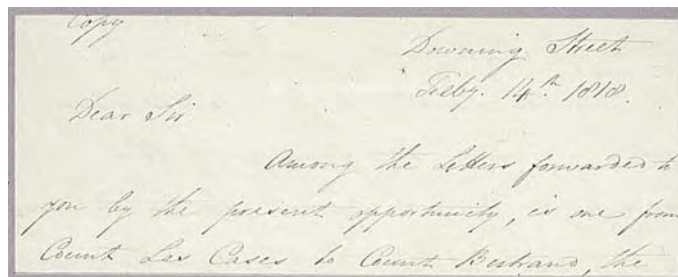 Copy
Downing Street
Feby. 14th. 1818.
Dear Sir
Among the Letters forwarded to
you by the present opportunity, is one from
Count Las Cases to Count Bertrand, the